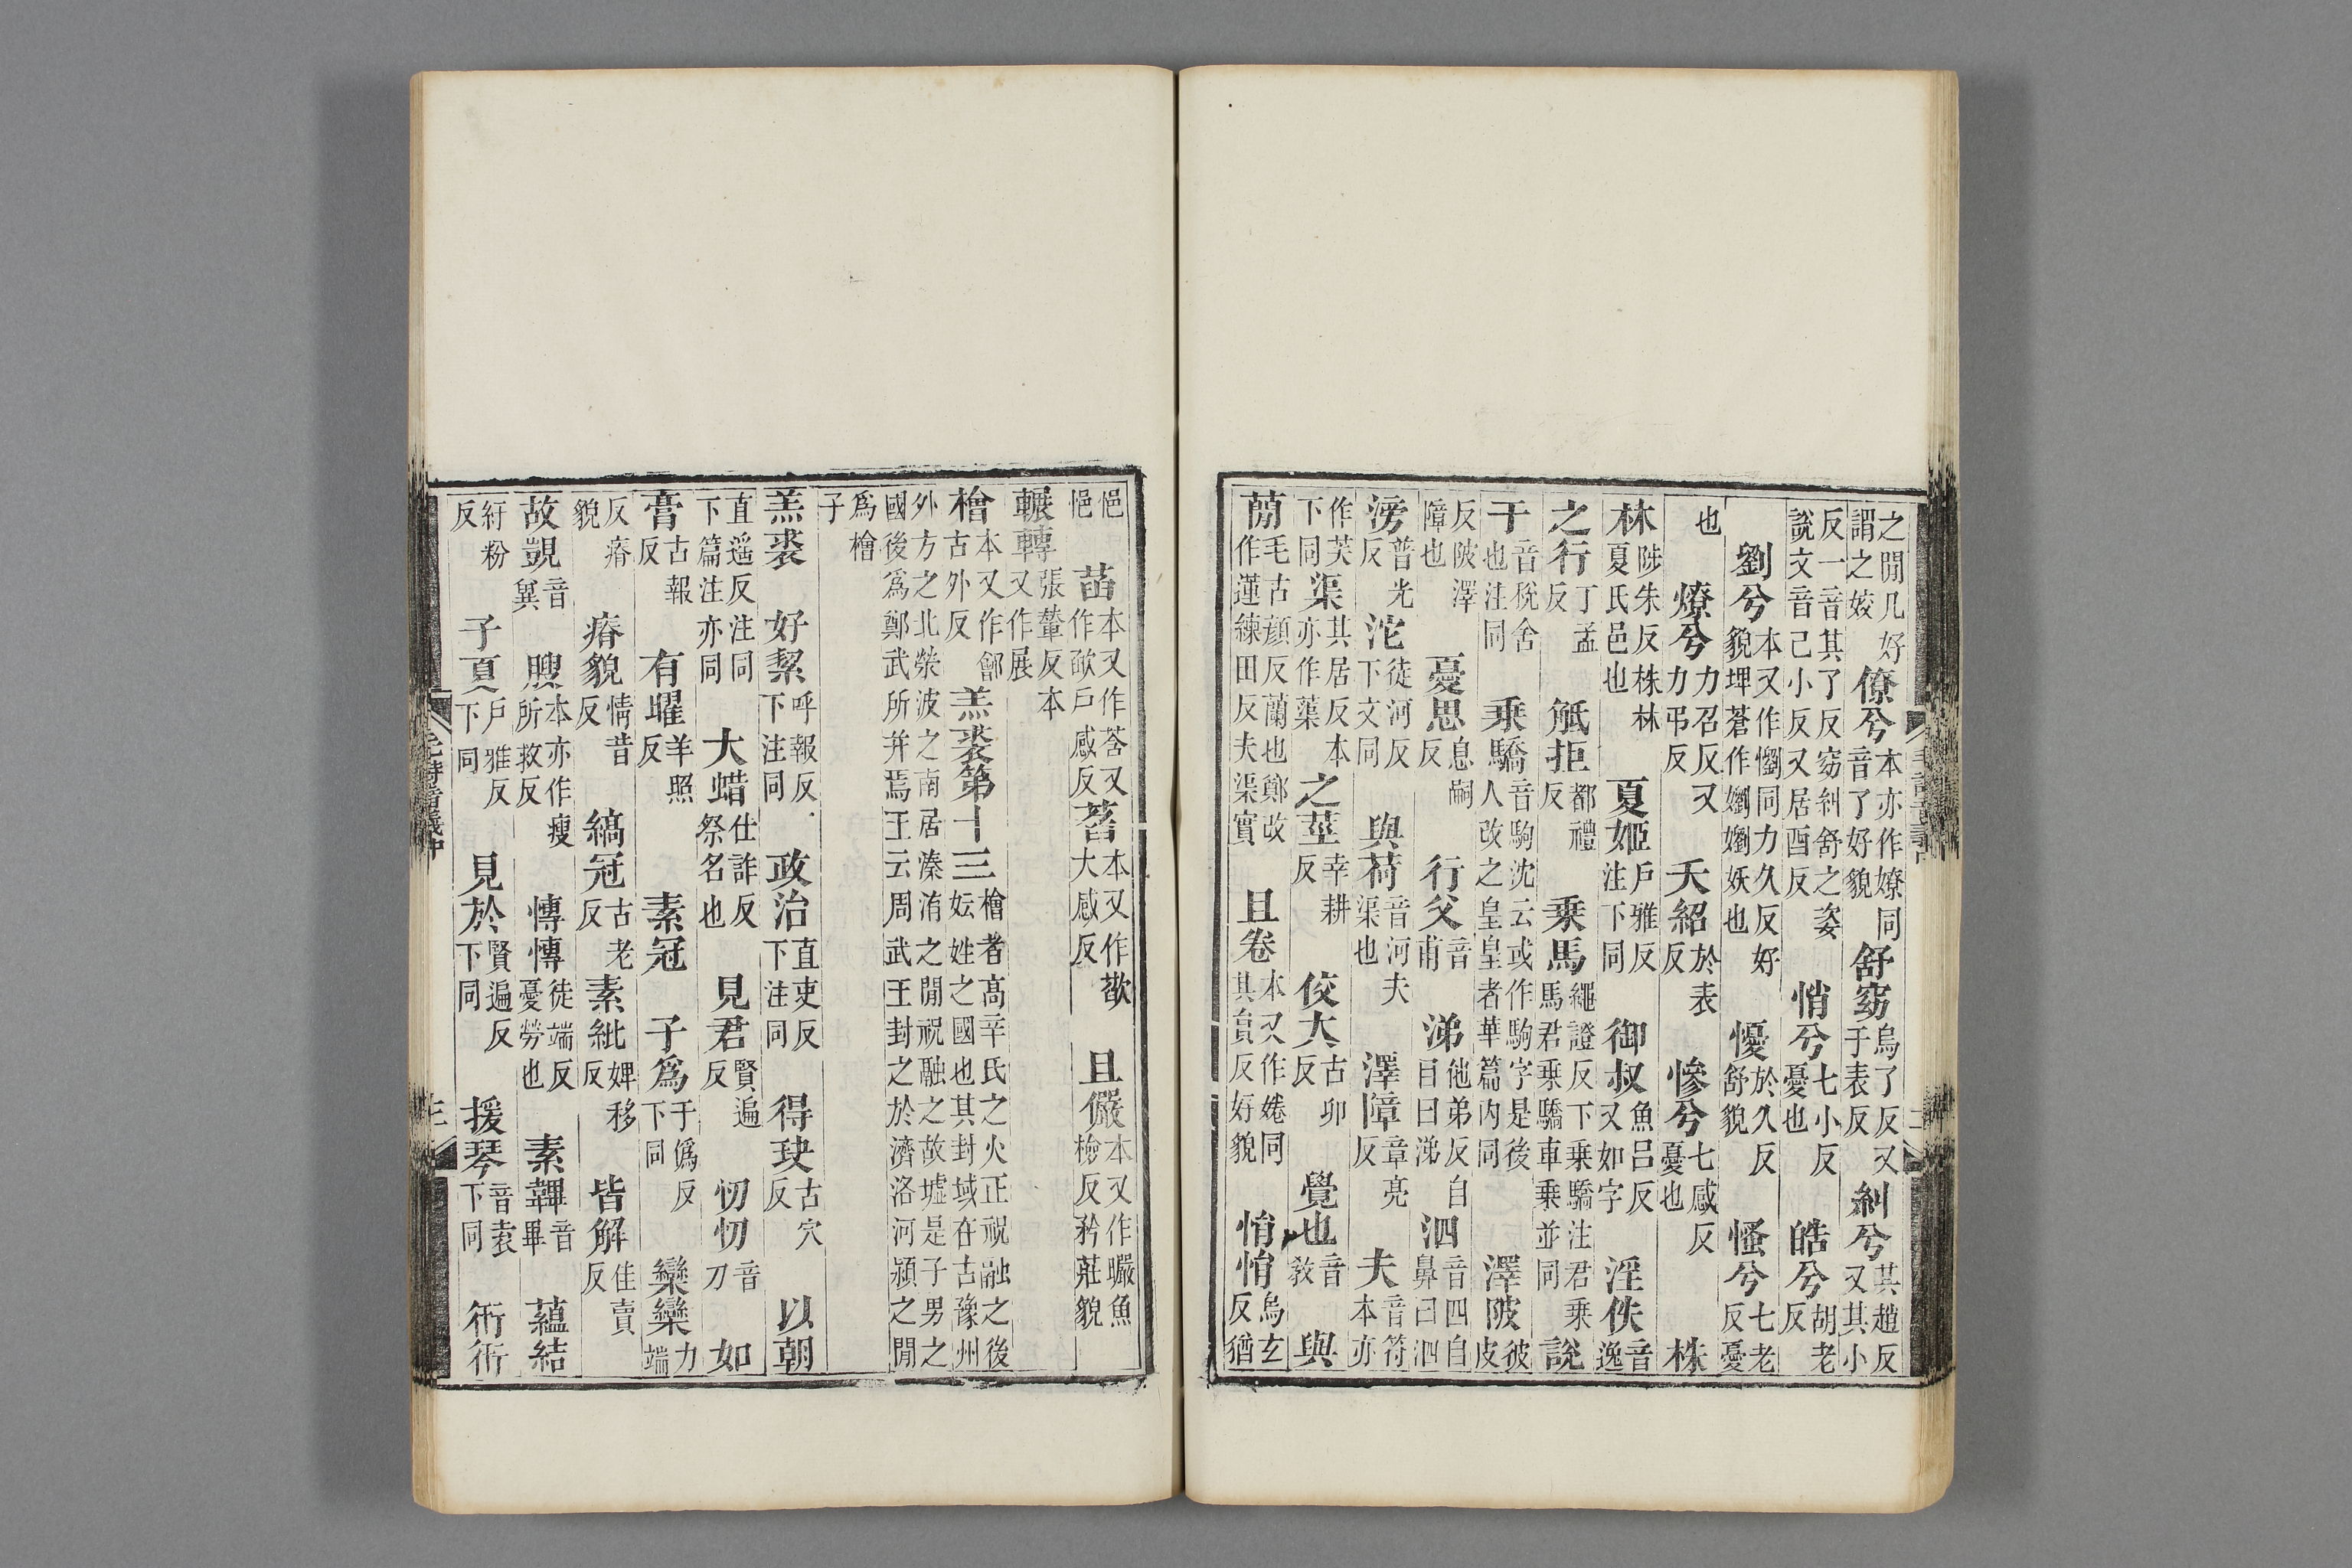 之閒凡好謂之姣僚兮本亦作嫽同音了好貌舒窈烏了反又于表反糾兮其趙反又其小
反一音其了反窈糾舒之姿說文音己小反又居酉反悄兮七小反憂也皓兮胡老反
劉兮本又作懰同力久反好貌埤蒼作嬼嬼妖也懮於久反舒貌慅兮七老反憂
也燎兮力召反又力弔反夭紹於表反慘兮七感反憂也株
林陟朱反株林夏氏邑也夏姬戶雅反注下同御叔魚呂反又如字淫佚音逸
之行丁孟反觝拒都禮反乘馬繩證反下乘驕注君乘馬君乘驕車乘並同說
于音稅舍也注同乘驕音駒沈云或作駒字是後人改之皇皇者華篇内同澤陂彼皮
反陂澤障也憂思息嗣反行父音甫涕他弟反自目曰涕泗音四自鼻曰泗
滂普光反沱徒河反下文同與荷音河夫渠也澤障章亮反夫音符本亦
作芙下同渠其居反本亦作蕖之莖幸耕反佼大古卯反覺也音敎與
蕑毛古顔反蘭也鄭改作蓮練田反夫渠實且卷本又作婘同其貟反好貌悁悁烏玄反猶
悒悒菡本又作莟又作欿戶感反萏本又作歚大感反且儼本又作曮魚檢反矜莊貌
輾轉張輦反本又作展
檜本又作鄶古外反羔裘第十三檜者高辛氏之火正祝融之後妘姓之國也其封域在古豫州
外方之北滎波之南居溱洧之閒祝融之故墟是子男之國後爲鄭武所并焉王云周武王封之於濟洛河潁之閒
爲檜子
羔裘好絜呼報反下注同政治直吏反下注同得玦古穴反以朝
直遥反注同下篇注亦同大蜡仕詐反祭名也見君賢遍反忉忉音刀如
膏古報反有曜羊照反素冠子爲于僞反下同欒欒力端
反瘠貌瘠貌情昔反縞冠古老反素紕婢移反皆解佳賣反
故覬音冀膄本亦作瘦所救反慱慱徒端反憂勞也素韠音畢蘊結
紆粉反子夏戶雅反下同見於賢遍反下同援琴音袁下同衎衎